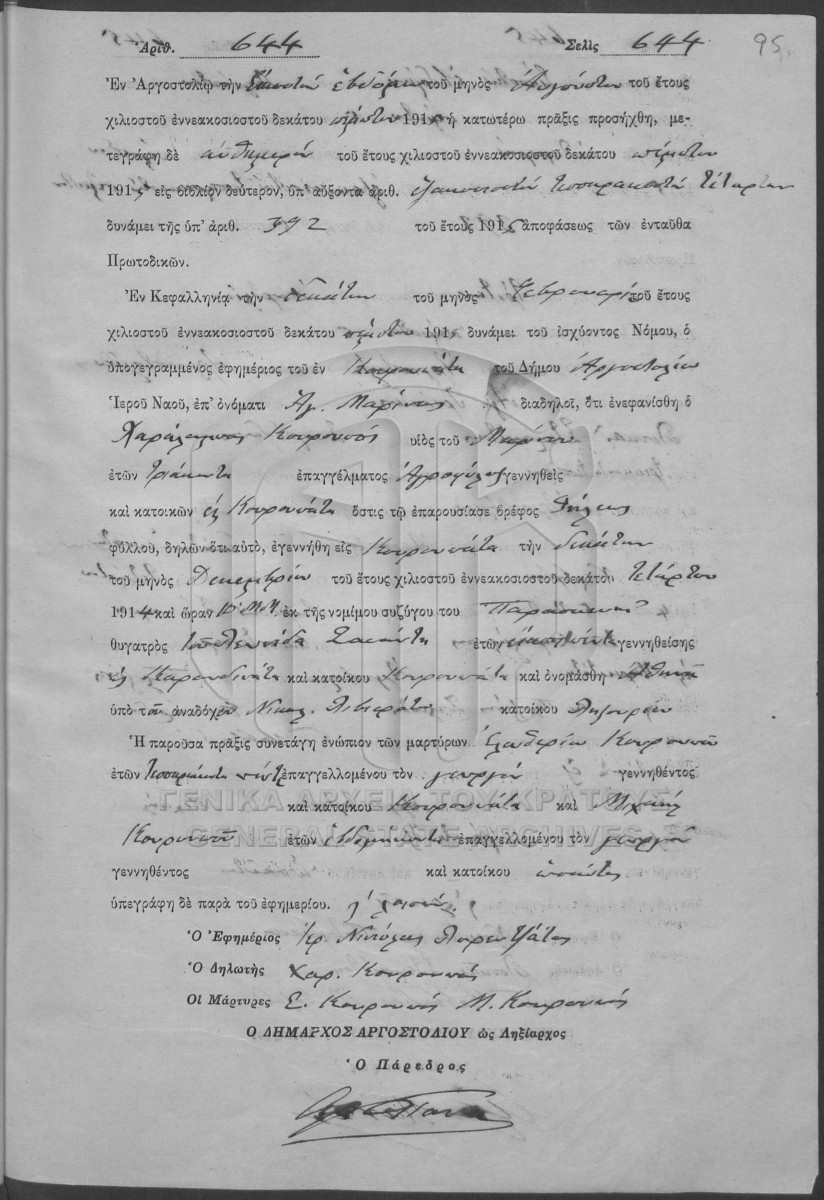 Ἀριθ. 644 Σελὶς 644 95
Ἐν Ἀργοστολίῳ τὴν Εἰκοστὴν ἑβδόμην τοῦ μηνὸς Αὐγούστου τοῦ ἔτους
χιλιοστοῦ ἐννεακοσιοστοῦ δεκάτου πέμπτου 1915 ἡ κατωτέρω πρᾶξις προσήχθη, με-
τεγράφη δὲ αὐθημερὸν τοῦ ἔτους χιλιοστοῦ ἐννεακοσιοστοῦ δεκάτου πέμπτου
1915 εἰς βιβλίον δεύτερον, ὑπ' αὔξοντα ἀριθ. ἑξακοσιοστὸν τεσσαρακοστὸν τέταρτον
δυνάμει τῆς ὑπ' ἀριθ. 392 τοῦ ἔτους 1915 ἀποφάσεως τῶν ἐνταῦθα
Πρωτοδικῶν.
Ἐν Κεφαλληνίᾳ τὴν δεκάτην τοῦ μηνὸς Φεβρουαρίου τοῦ ἔτους
χιλιοστοῦ ἐννεακοσιοστοῦ δεκάτου πέμπτου 1915 δυνάμει τοῦ ἰσχύοντος Νόμου, ὁ
ὑπογεγραμμένος ἐφημέριος τοῦ ἐν Κουρουπάτα τοῦ Δήμου Ἀργοστολίου
Ἱεροῦ Ναοῦ, ἐπ' ὀνόματι Ἁγ. Μαρίνας διαδηλοῖ, ὅτι ἐνεφανίσθη ὁ
Χαράλαμπος Κουρουπός υἱὸς τοῦ Μαρίνου
ἐτῶν τριάκοντα ἐπαγγέλματος Ἀγροφύλαξ γεννηθεὶς
καὶ κατοικῶν εἰς Κουρουπάτα ὅστις τῷ ἐπαρουσίασε βρέφος θήλεος
φύλλου, δηλῶν ὅτι αὐτὸ, ἐγεννήθη εἰς Κουρουπάτα τὴν δεκάτην
τοῦ μηνὸς Δεκεμβρίου τοῦ ἔτους χιλιοστοῦ ἐννεακοσιοστοῦ δεκάτου τετάρτου
1914 καὶ ὥραν 10 Μ.Μ. ἐκ τῆς νομίμου συζύγου του Παρασκευῆς
θυγατρὸς ἐτῶν γεννηθείσης
εἰς Καρουδινάτα καὶ κατοίκου Κουρουπάτα καὶ ὀνομάσθη Ἀθηνᾶ
ὑπὸ τοῦ ἀναδόχου Νικολ. Λιβιεράτου κατοίκου Ληξουρίου
Ἡ παροῦσα πρᾶξις συνετάγη ἐνώπιον τῶν μαρτύρων Ἐλευθερίου Κουρουποῦ
ἐτῶν τεσσαράκοντα πέντε ἐπαγγελλομένου τὸν γεωργὸν γεννηθέντος
καὶ κατοίκου Κουρουπάτα καὶ Μιχαὴλ
Κουρουποῦ ἐτῶν ἑβδομήκοντα ἐπαγγελλομένου τὸν γεωργὸν
γεννηθέντος καὶ κατοίκου ὡσαύτως
ὑπεγράφη δὲ παρὰ τοῦ ἐφημερίου.
Ὁ Ἐφημέριος Ἱερ. Νικόλαος Λορεντζάτος
Ὁ Δηλωτὴς Χαρ. Κουρουπός
Οἱ Μάρτυρες Ε. Κουρουπός Μ. Κουρουπός
Ο ΔΗΜΑΡΧΟΣ ΑΡΓΟΣΤΟΛΙΟΥ ὡς Ληξίαρχος
Ὁ Πάρεδρος
ΓΕΝΙΚΑ ΑΡΧΕΙΑ ΤΟΥ ΚΡΑΤΟΥΣ
GENERAL STATE ARCHIVES